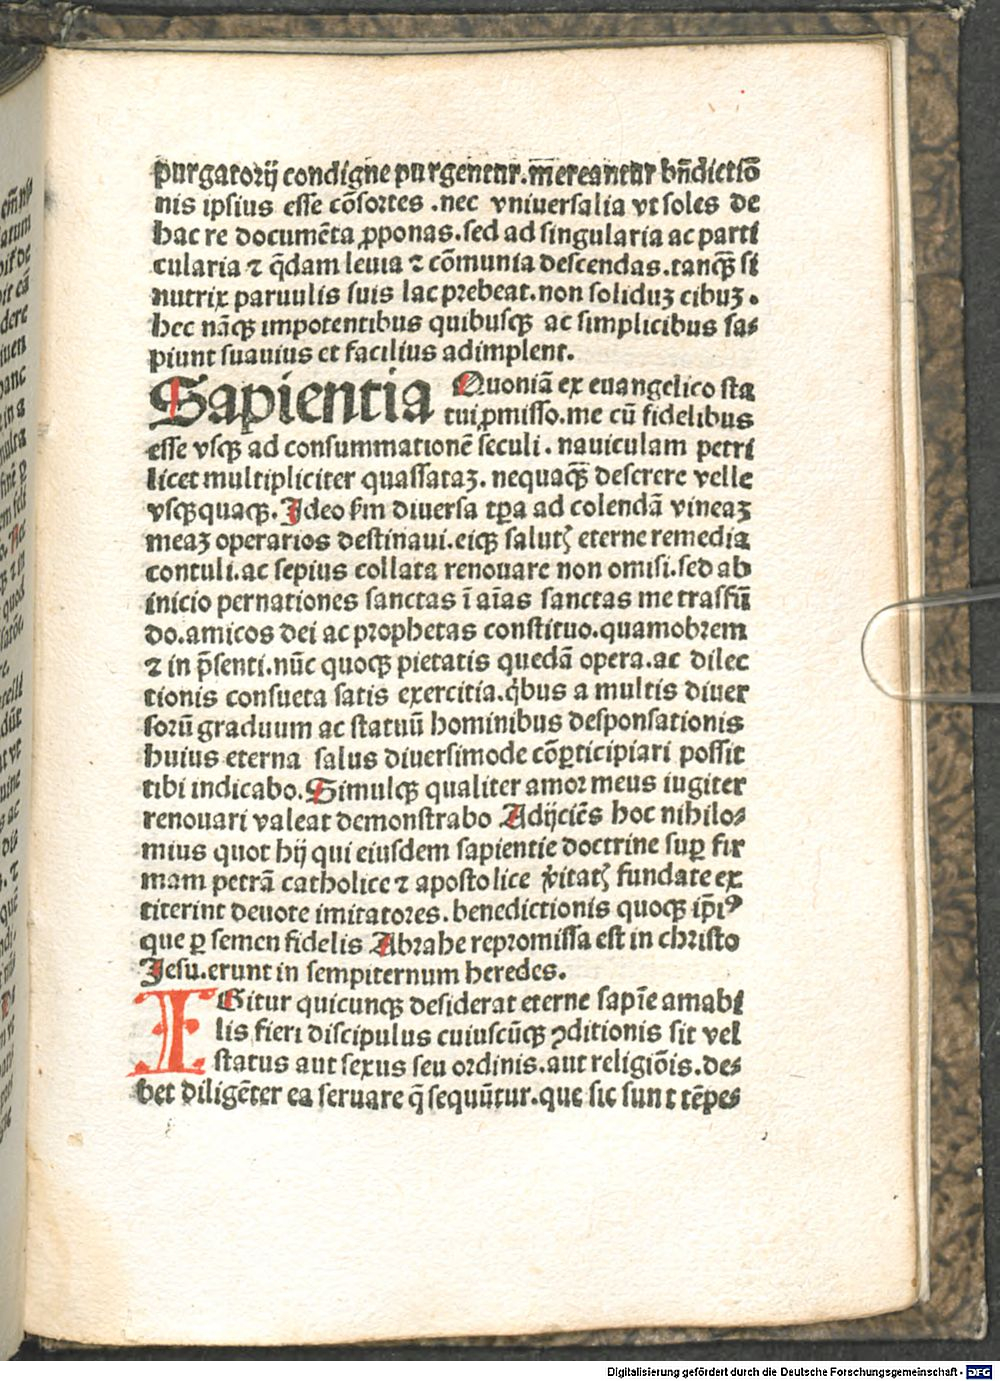 purgatorij condigne purgentur. m̄ereantur bn̄dictiō
nis ipsius esse cōsortes .nec vniuersalia vt soles de
hac re documēta ꝓponas.sed ad singularia ac parti
cularia ⁊ q̄dam leuia ⁊ cōmunia descendas.tanqꝫ si
nutrix paruulis suis lac prebeat.non soliduꝫ cibuꝫ.
hec nāqꝫ impotentibus quibusqꝫ ac simplicibus sa⸗
piunt suauius et facilius adimplent.
Sapientia Quoniā ex euangelico sta
tui ꝓmisso.me cū fidelibus
esse vsqꝫ ad consummationē seculi. nauiculam petri
licet multipliciter quassataꝫ. nequaqꝫ deserere velle
vsqꝫquaqꝫ. Ideo ẜm diuersa tꝑa ad colendā vineaꝫ
meaꝫ operarios destinaui.eiqꝫ salutꝭ eterne remedia
contuli.ac sepius collata renouare non omisi.sed ab
inicio pernationes sanctas ī aīas sanctas me trasfū
do.amicos dei ac prophetas constituo.quamobrem
⁊ in p̄senti.nūc quoqꝫ pietatis quedā opera.ac dilec
tionis consueta satis exercitia.qͥbus a multis diuer
sorū graduum ac statuū hominibus desponsationis
huius eterna salus diuersimode cōꝑticipiari possit
tibi indicabo.Simulqꝫ qualiter amor meus iugiter
renouari valeat demonstrabo Adijciēs hoc nihilo⸗
mius quot hij qui eiusdem sapientie doctrine suꝑ fir
mam petrā catholice ⁊ apostolice v̓itatꝭ fundate ex
titerint deuote imitatores.benedictionis quoqꝫ ip̄iꝰ
que ꝑ semen fidelis Abrahe repromissa est in christo
Jesu.erunt in sempiternum heredes.
IGitur quicunqꝫ desiderat eterne sapīe amabi
lis fieri discipulus cuiuscūqꝫ ꝯditionis sit vel
status aut sexus seu ordinis.aut religiōis.de⸗
bet diligēter ea seruare q̄ sequūtur.que sic sunt tēpe⸗
Digitalisierung gefördert durch die Deutsche Forschungsgemeinschaft - DFG